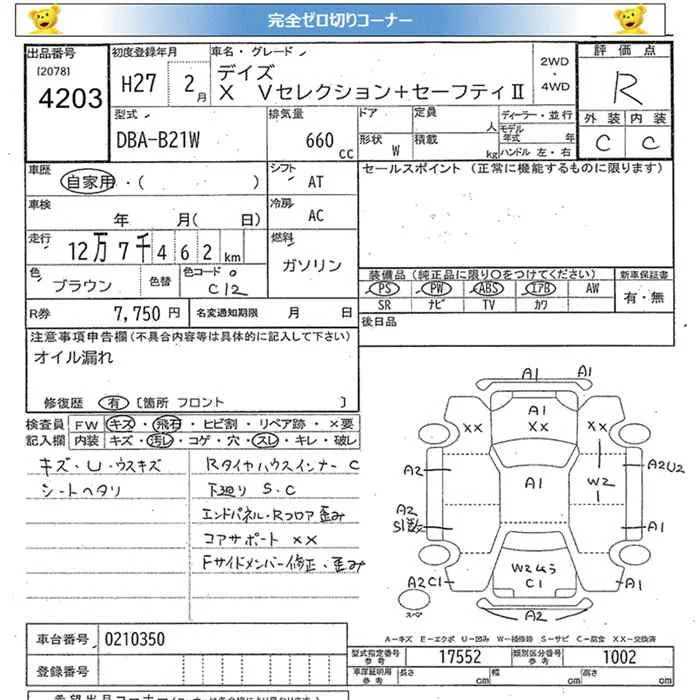 完全ゼロ切りコーナー
出品番号 初度登録年月 車名・グレード 評価点
[2078]
4203 H27 2月 デイズ 2WD・4WD R
X Vセレクション+セーフティⅡ
型式 排気量 ドア 定員 人 ディーラー・並行 外装 内装
DBA-B21W 660cc 形状 W 積載 kg モデル年式 年 ハンドル 左・右 C C
車歴 自家用・( ) シフト AT セールスポイント (正常に機能するものに限ります)
車検 年 月( 日) 冷房 AC
走行 12万7千462km 燃料 ガソリン
色 ブラウン 色替 色コード C12 装備品(純正品に限り○をつけてください) 新車保証書
PS PW ABS エアB AW 有・無
SR ナビ TV カワ
R券 7,750円 名変通知期限 月 日 後日品
注意事項申告欄(不具合内容等は具体的に記入して下さい)
オイル漏れ
修復歴 有 [箇所 フロント ]
検査員 FW キズ・飛石・ヒビ割・リペア跡・×要
記入欄 内装 キズ・汚レ・コゲ・穴・スレ・キレ・破レ
キズ・U・ウスキズ RタイヤハウスインナーC
シートヘタリ 下廻りS・C
エンドパネル・Rフロア歪み
コアサポート XX
Fサイドメンバー修正・歪み
A1 A1
XX A1 XX XX
A2 A1 W2 A2U2
A2 A1
A2C1 C1 A1
A2
スペア
A-キズ E-エクボ U-凹み W-補修跡 S-サビ C-腐食 XX-交換済
車台番号 0210350 型式指定番号 参考 17552 類別区分番号 参考 1002
登録番号 車庫証明用 参考 長さ cm 幅 cm 高さ cm